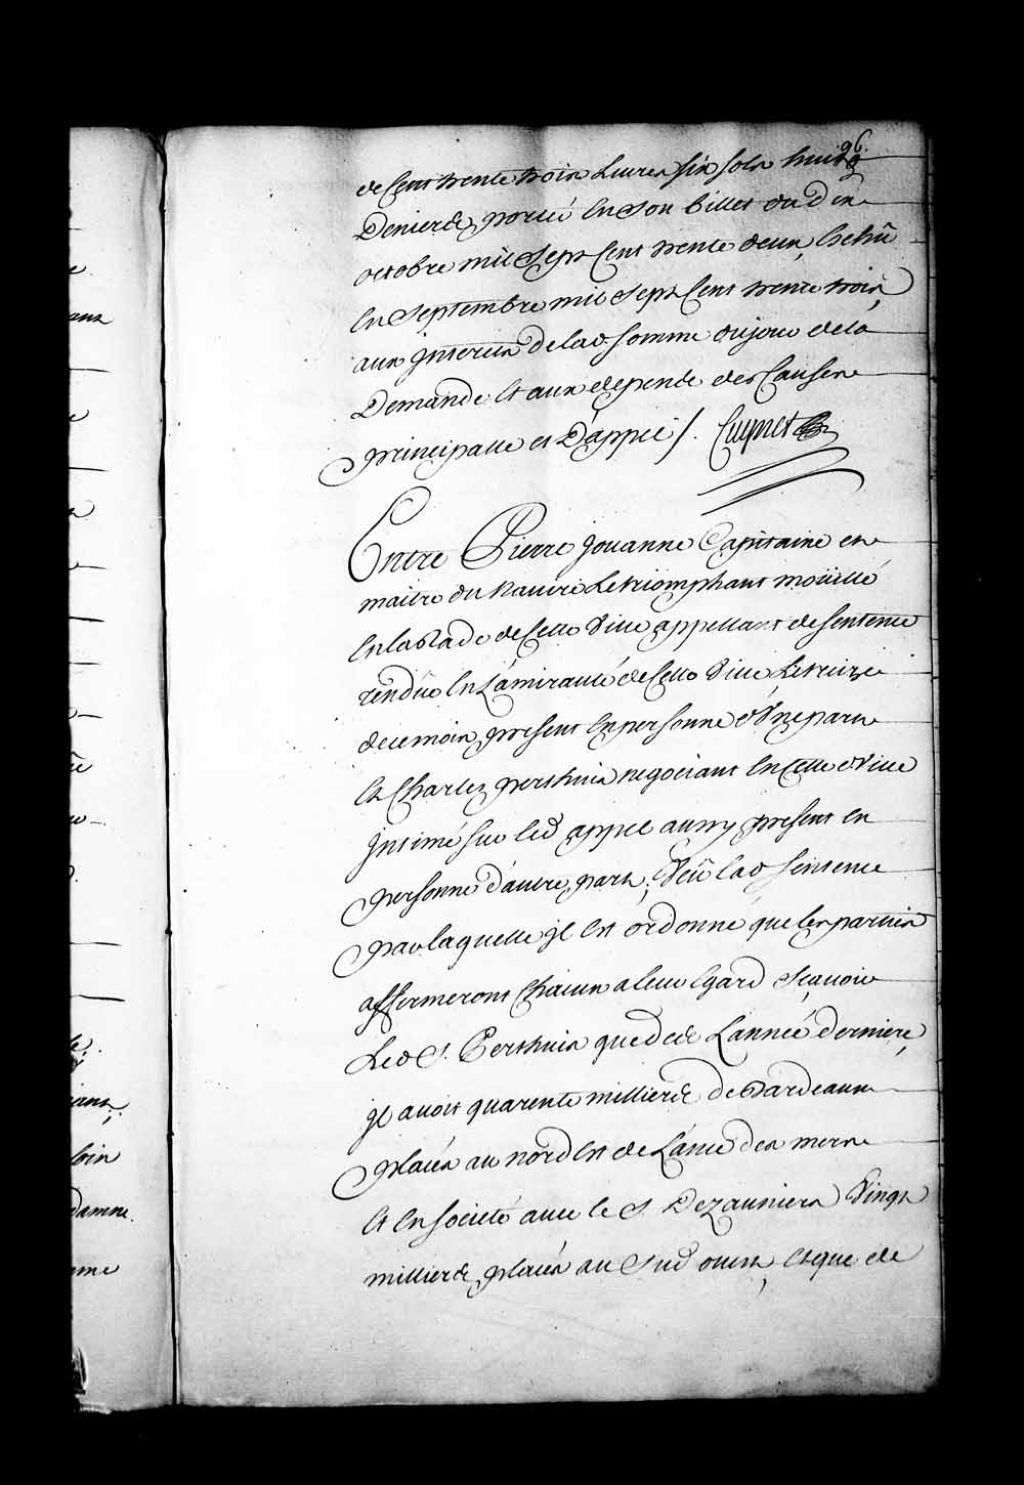 96.
de Cent trente trois Livres six sols huit
Deniers porteé en son billet du dix
octobre mil sept Cent trente deux, Echû
en septembre mil sept Cent trente trois,
aux jnterets de lad somme du jour de la
Demande et aux depends des Causes
principalle et D'appel /. Cugnet
Entre Pierre Jouanne Capitaine et
maitre du Navire Le triomphant moüillé
en la Rade de Cette Ville appellant de sentence
rendüe en L'amirauté de Cette Ville Le treize
de ce mois, present en personne d'Vne part
Et Charles perthuis negociant en Cette Ville
jntimé sur led appel aussy present en
personne d'autre part; Veû lad sentence
par laquelle jl est ordonné que les parties
affermeront Chacun a leur Egard sçavoir
Led S. Perthuis que des L'anneé derniere,
jl avoit quarente milliers de Bardeaux
placés au nord est de L'ance des meres
et en societé avec le S. Dezauniers Vingt
milliers placés au sud ouest, et que de
ans
loin
damne.